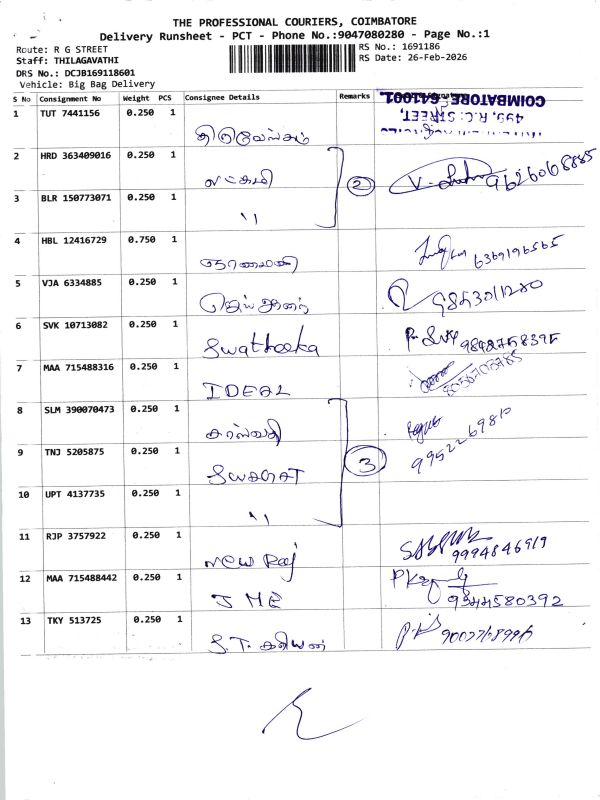 THE PROFESSIONAL COURIERS, COIMBATORE
Delivery Runsheet - PCT - Phone No.:9047080280 - Page No.:1
Route: R G STREET
RS No.: 1691186
Staff: THILAGAVATHI
RS Date: 26-Feb-2026
DRS No.: DCJB169118601
Vehicle: Big Bag Delivery
S No Consignment No Weight PCS Consignee Details Remarks
COIMBATORE - 641001.
499, R.G. STREET,
1 TUT 7441156 0.250 1
2 HRD 363409016 0.250 1 லட்சுமி 2 9626068885
3 BLR 150773071 0.250 1 "
4 HBL 12416729 0.750 1 நாராயணி 6369196565
5 VJA 6334885 0.250 1
6 SVK 10713082 0.250 1 Swatheeka
7 MAA 715488316 0.250 1 IDEAL 8056703785
8 SLM 390070473 0.250 1 சரஸ்வதி
9 TNJ 5205875 0.250 1 SWAGAT 3 9952269810
10 UPT 4137735 0.250 1 "
11 RJP 3757922 0.250 1 New Raj 9994846919
12 MAA 715488442 0.250 1 JME 9344580392
13 TKY 513725 0.250 1 S.T.